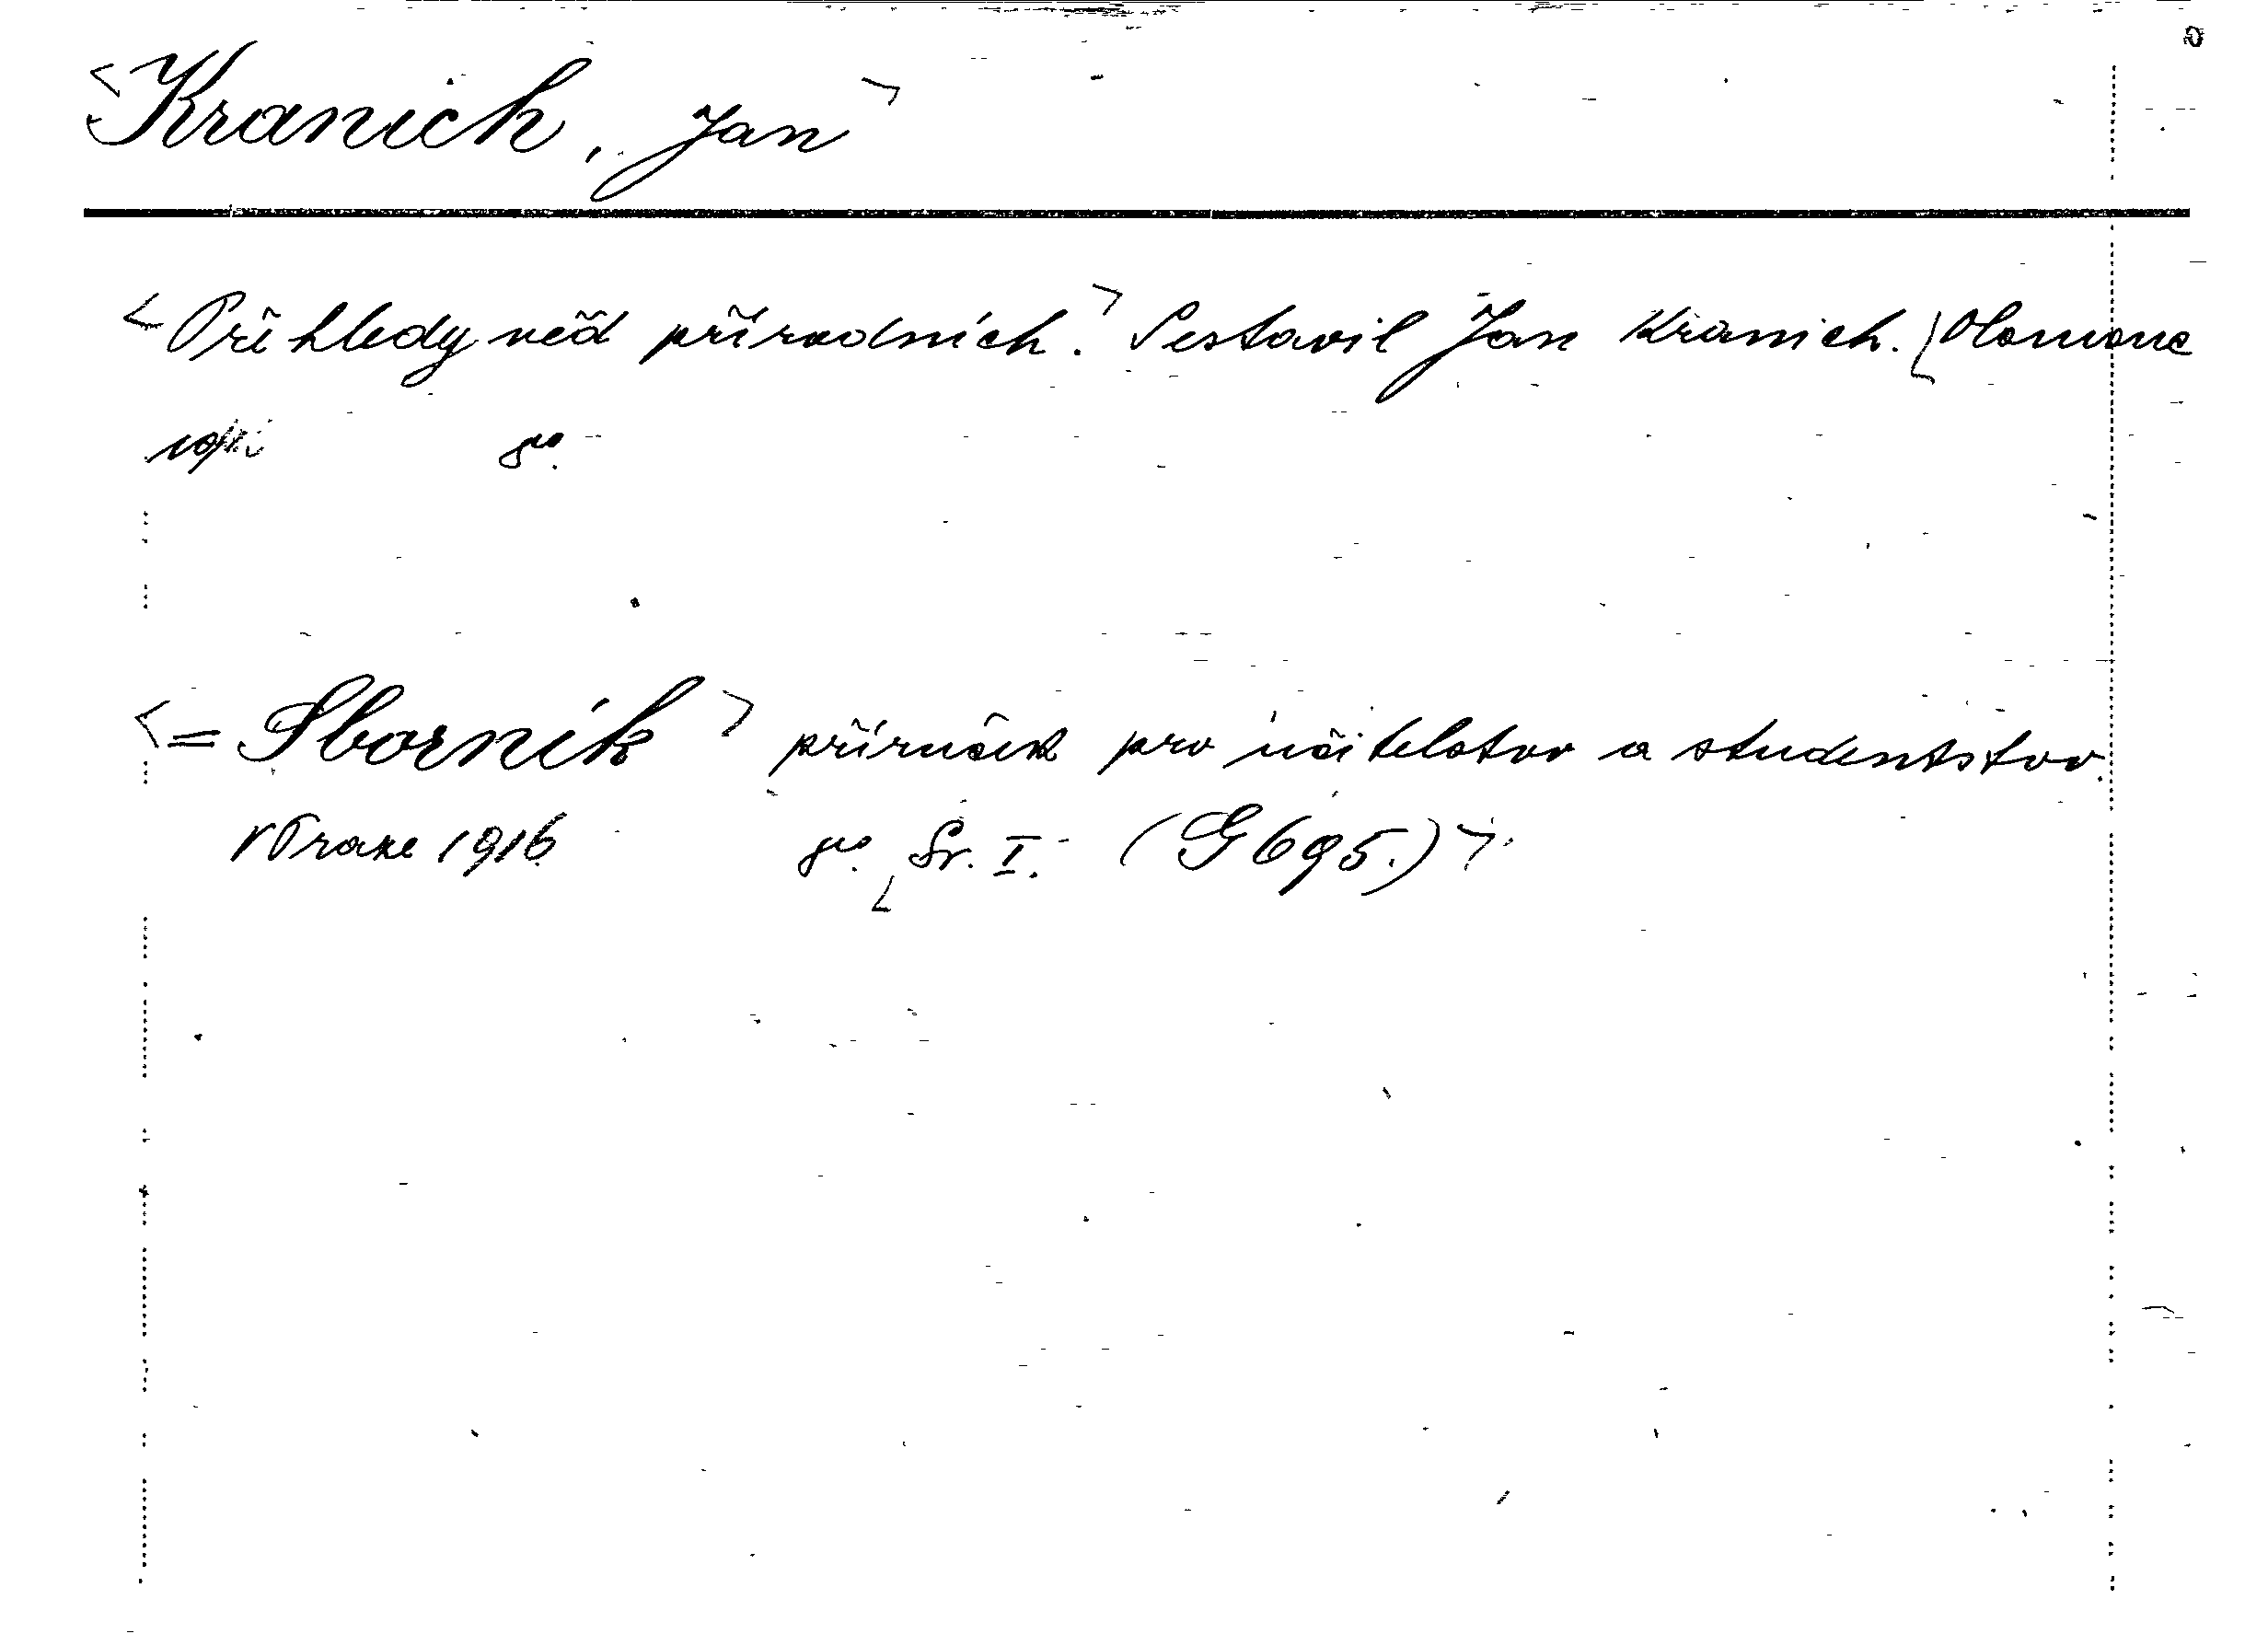 <Kranich, Jan>
<Přehledy věd přírodních.> Sestavil Jan Kranich. [Olomouc
8º.
<= Sborník> příruček pro učitelstvo a studentstvo.
V Praze 1916 8º. [Sv. I. (G 695.)>.